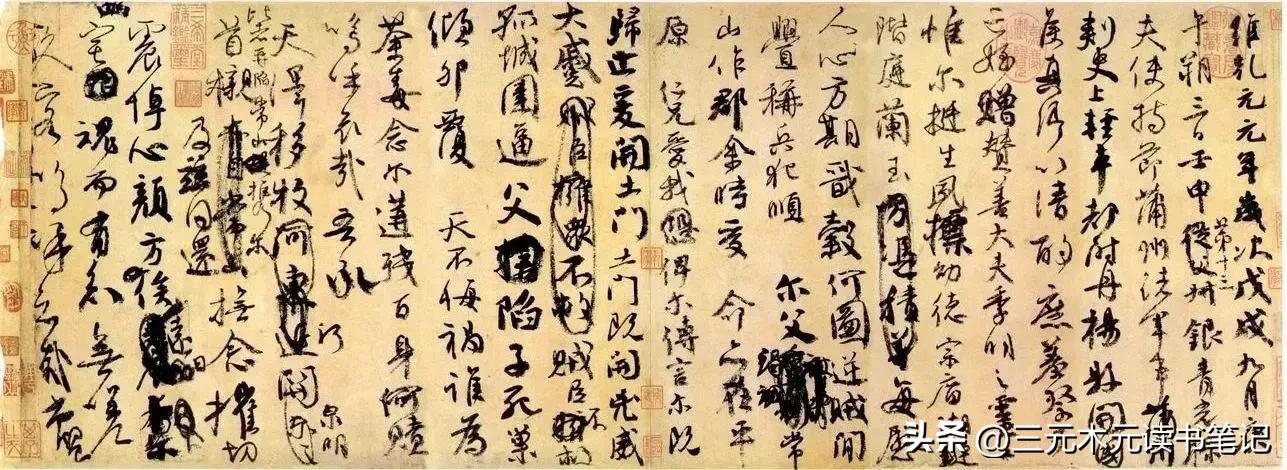 維乾元元年歲次戊戌九月庚
午朔三日壬申第十三從父叔銀青光祿
夫使持節蒲州諸軍事蒲州
刺史上輕車都尉丹楊縣開國
侯真卿以清酌庶羞祭于
亡姪贈贊善大夫季明之靈
惟爾挺生夙標幼德宗廟瑚璉
階庭蘭玉方憑積善每慰
人心方期戩穀何圖逆賊閒
釁稱兵犯順爾父竭誠常
山作郡余時受命亦在平
原仁兄愛我恐俾爾傳言爾既
歸止爰開土門土門既開凶威
大蹙賊臣擁眾不救賊臣不救
孤城圍逼父擒陷子死巢
傾卵覆天不悔禍誰為
荼毒念爾遘殘百身何贖
嗚呼哀哉吾承
天澤移牧河東近河關泉明
比者再陷常山攜爾
首櫬及茲同還撫念摧切
震悼心顏方俟遠日
幽宅魂而有知無嗟
久客嗚呼哀哉尚饗
头条 @三元木元读书笔记